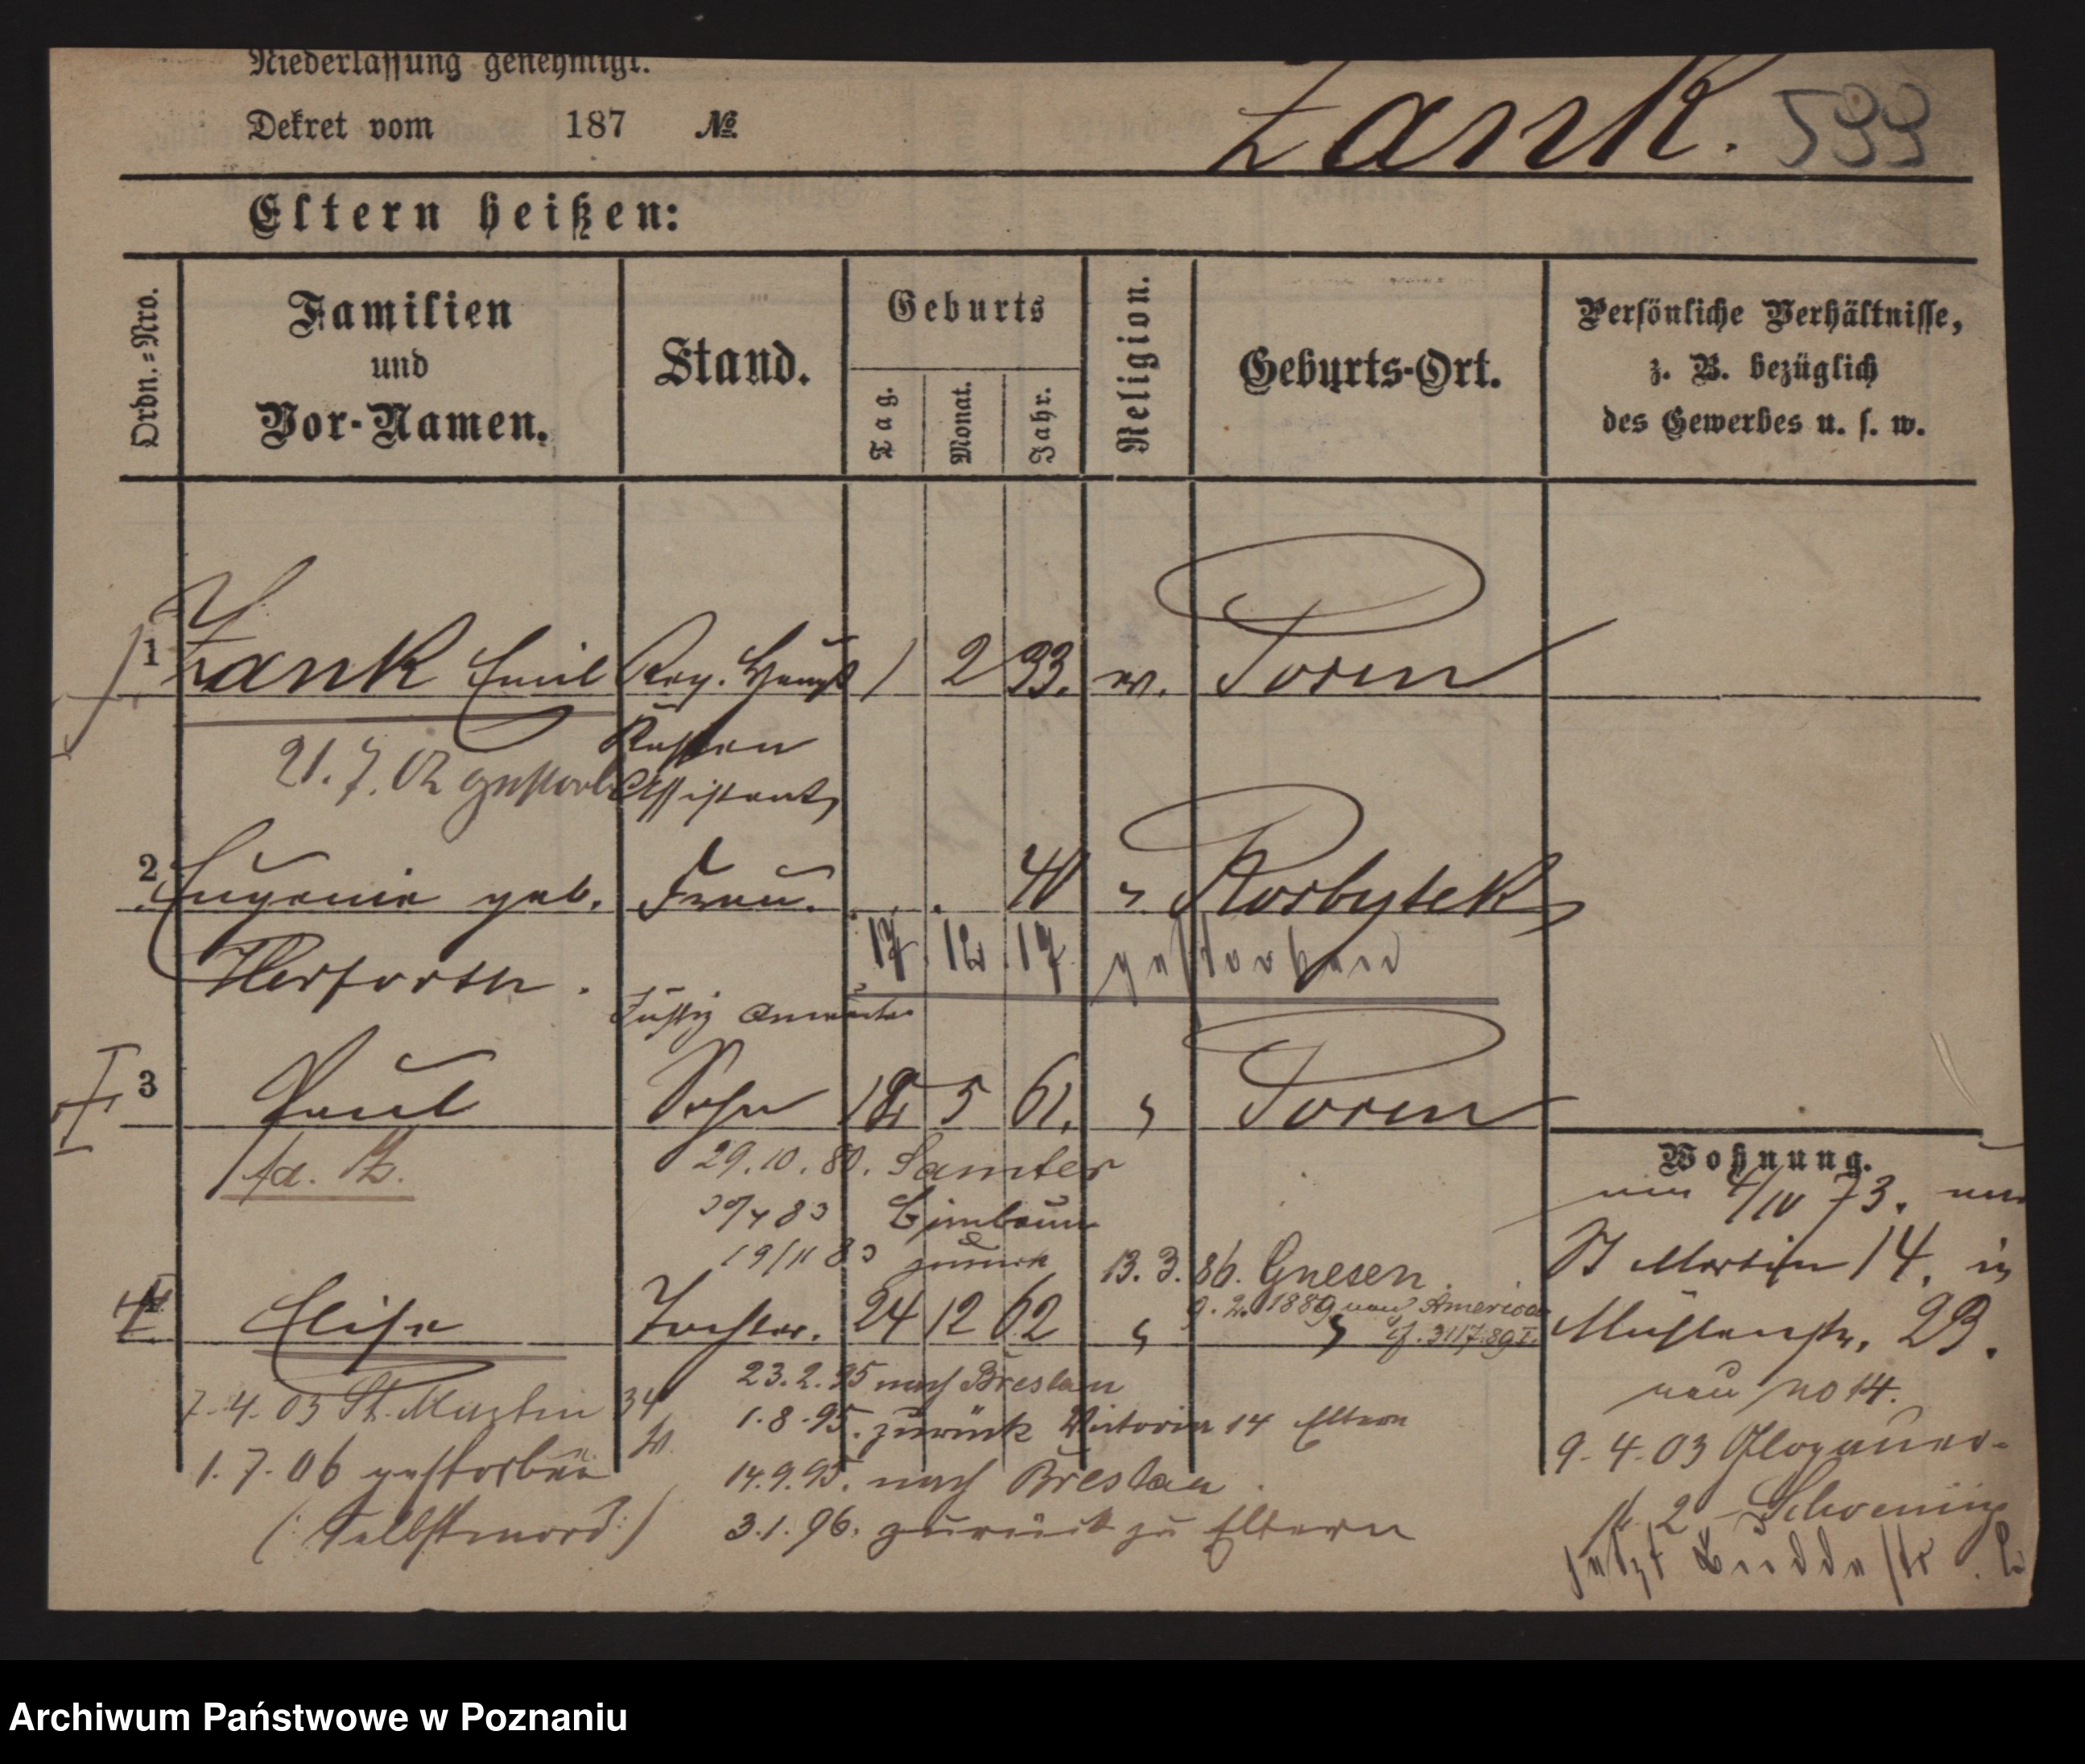 Niederlassung genehmigt.
Dekret vom 187 No.
Zank. 599
Eltern heißen:
Ordn.=Nro.
Familien
und
Vor-Namen.
Stand.
Geburts
Tag.
Monat.
Jahr.
Religion.
Geburts-Ort.
Persönliche Verhältnisse,
z. B. bezüglich
des Gewerbes u. s. w.
1 Zank Emil Reg. Haupt 1 2 33. ev. Posen
Kassen
21.7.02 gestorb. Assistent
2 Eugenie geb. Frau. 40 " Kosbytek
17. 12. 17 gestorben
Herforth.
Justiz Anwärter
3 Paul Sohn 18 5 61. " Posen
29.10.80. Samter
83 Birnbaum
19/11 83 zurück
13.3.86. Gnesen.
9.2.1889 nach America
4 Elise Tochter. 24 12 62 " "
23.2.95 nach Breslau
7.4.03 St. Martin 34
1.8.95. zurück Victoria 14 Eltern
1.7.06 gestorben
14.9.95. nach Breslau
(Selbstmord)
3.1.96. zurück zu Eltern
Wohnung.
4/10 73.
St Martin 14. in
Mühlenstr. 23.
neu no 14.
9.4.03 Glogauer-
2
jetzt Buddestr.
Archiwum Państwowe w Poznaniu